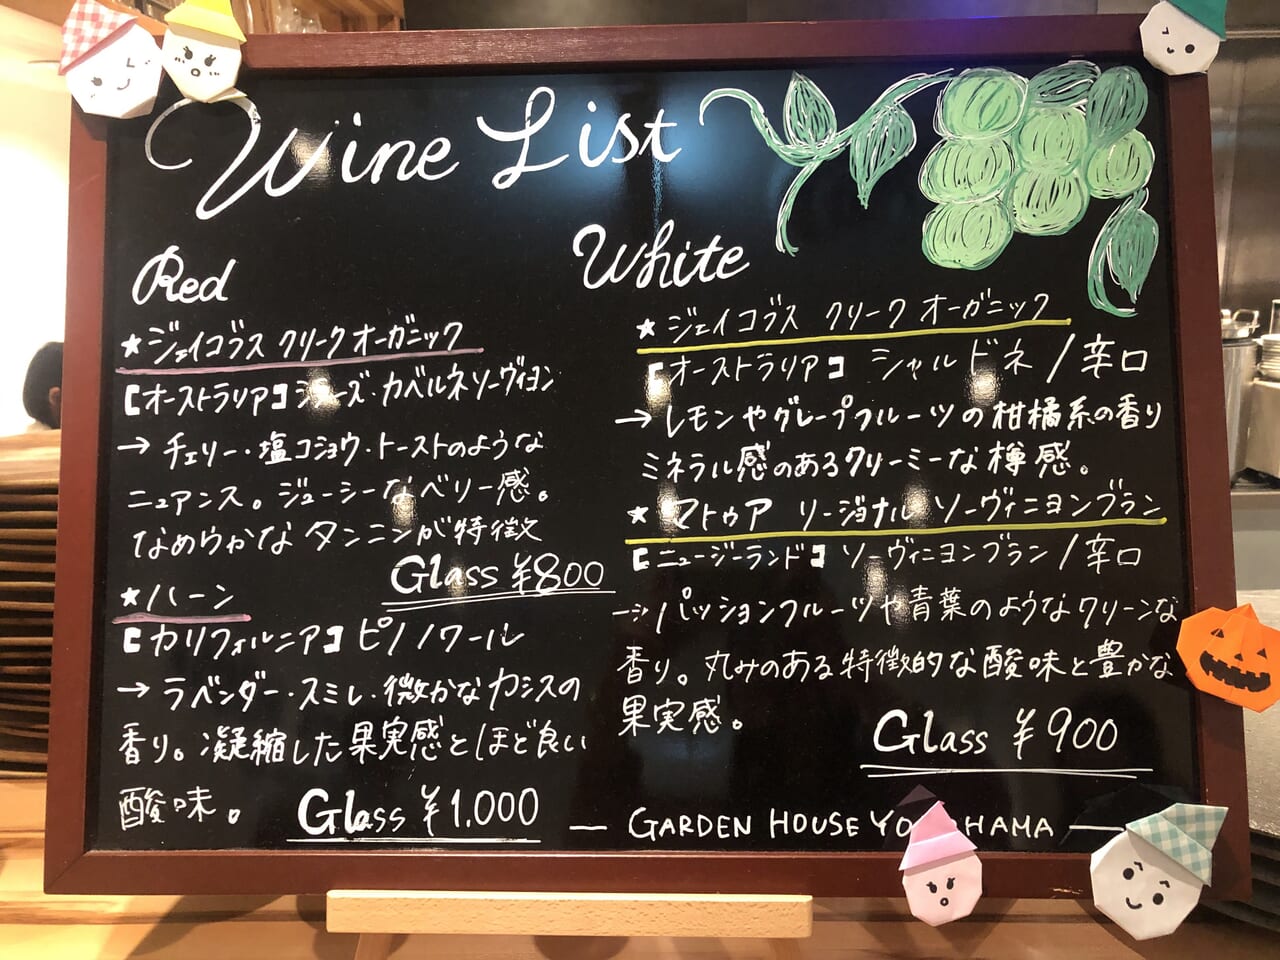 Wine List
Red
★ジェイコブス クリーク オーガニック
【オーストラリア】シラーズ・カベルネソーヴィヨン
→ チェリー・塩コショウ・トーストのような
ニュアンス。ジューシーなベリー感。
なめらかな タンニンが特徴
Glass ¥800
★ハーン
【カリフォルニア】ピノノワール
→ ラベンダー・スミレ・微かなカシスの
香り。凝縮した果実感とほど良い
酸味。
Glass ¥1,000
White
★ ジェイコブス クリーク オーガニック
【オーストラリア】 シャルドネ/辛口
→ レモンやグレープフルーツの柑橘系の香り
ミネラル感のあるクリーミーな樽感。
★ マトゥア リージョナル ソーヴィニヨンブラン
【ニュージーランド】 ソーヴィニヨンブラン/辛口
→パッションフルーツや青葉のようなクリーンな
香り。丸みのある特徴的な酸味と豊かな
果実感。
Glass ¥900
— GARDEN HOUSE YOKOHAMA —